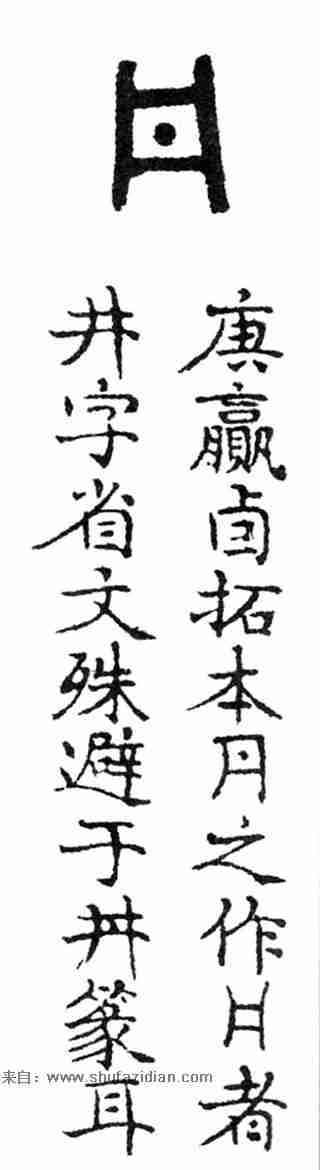 丹
庚贏卣拓本丹之作者
井字省文殊避于丼篆耳
来自：www.shufazidian.com